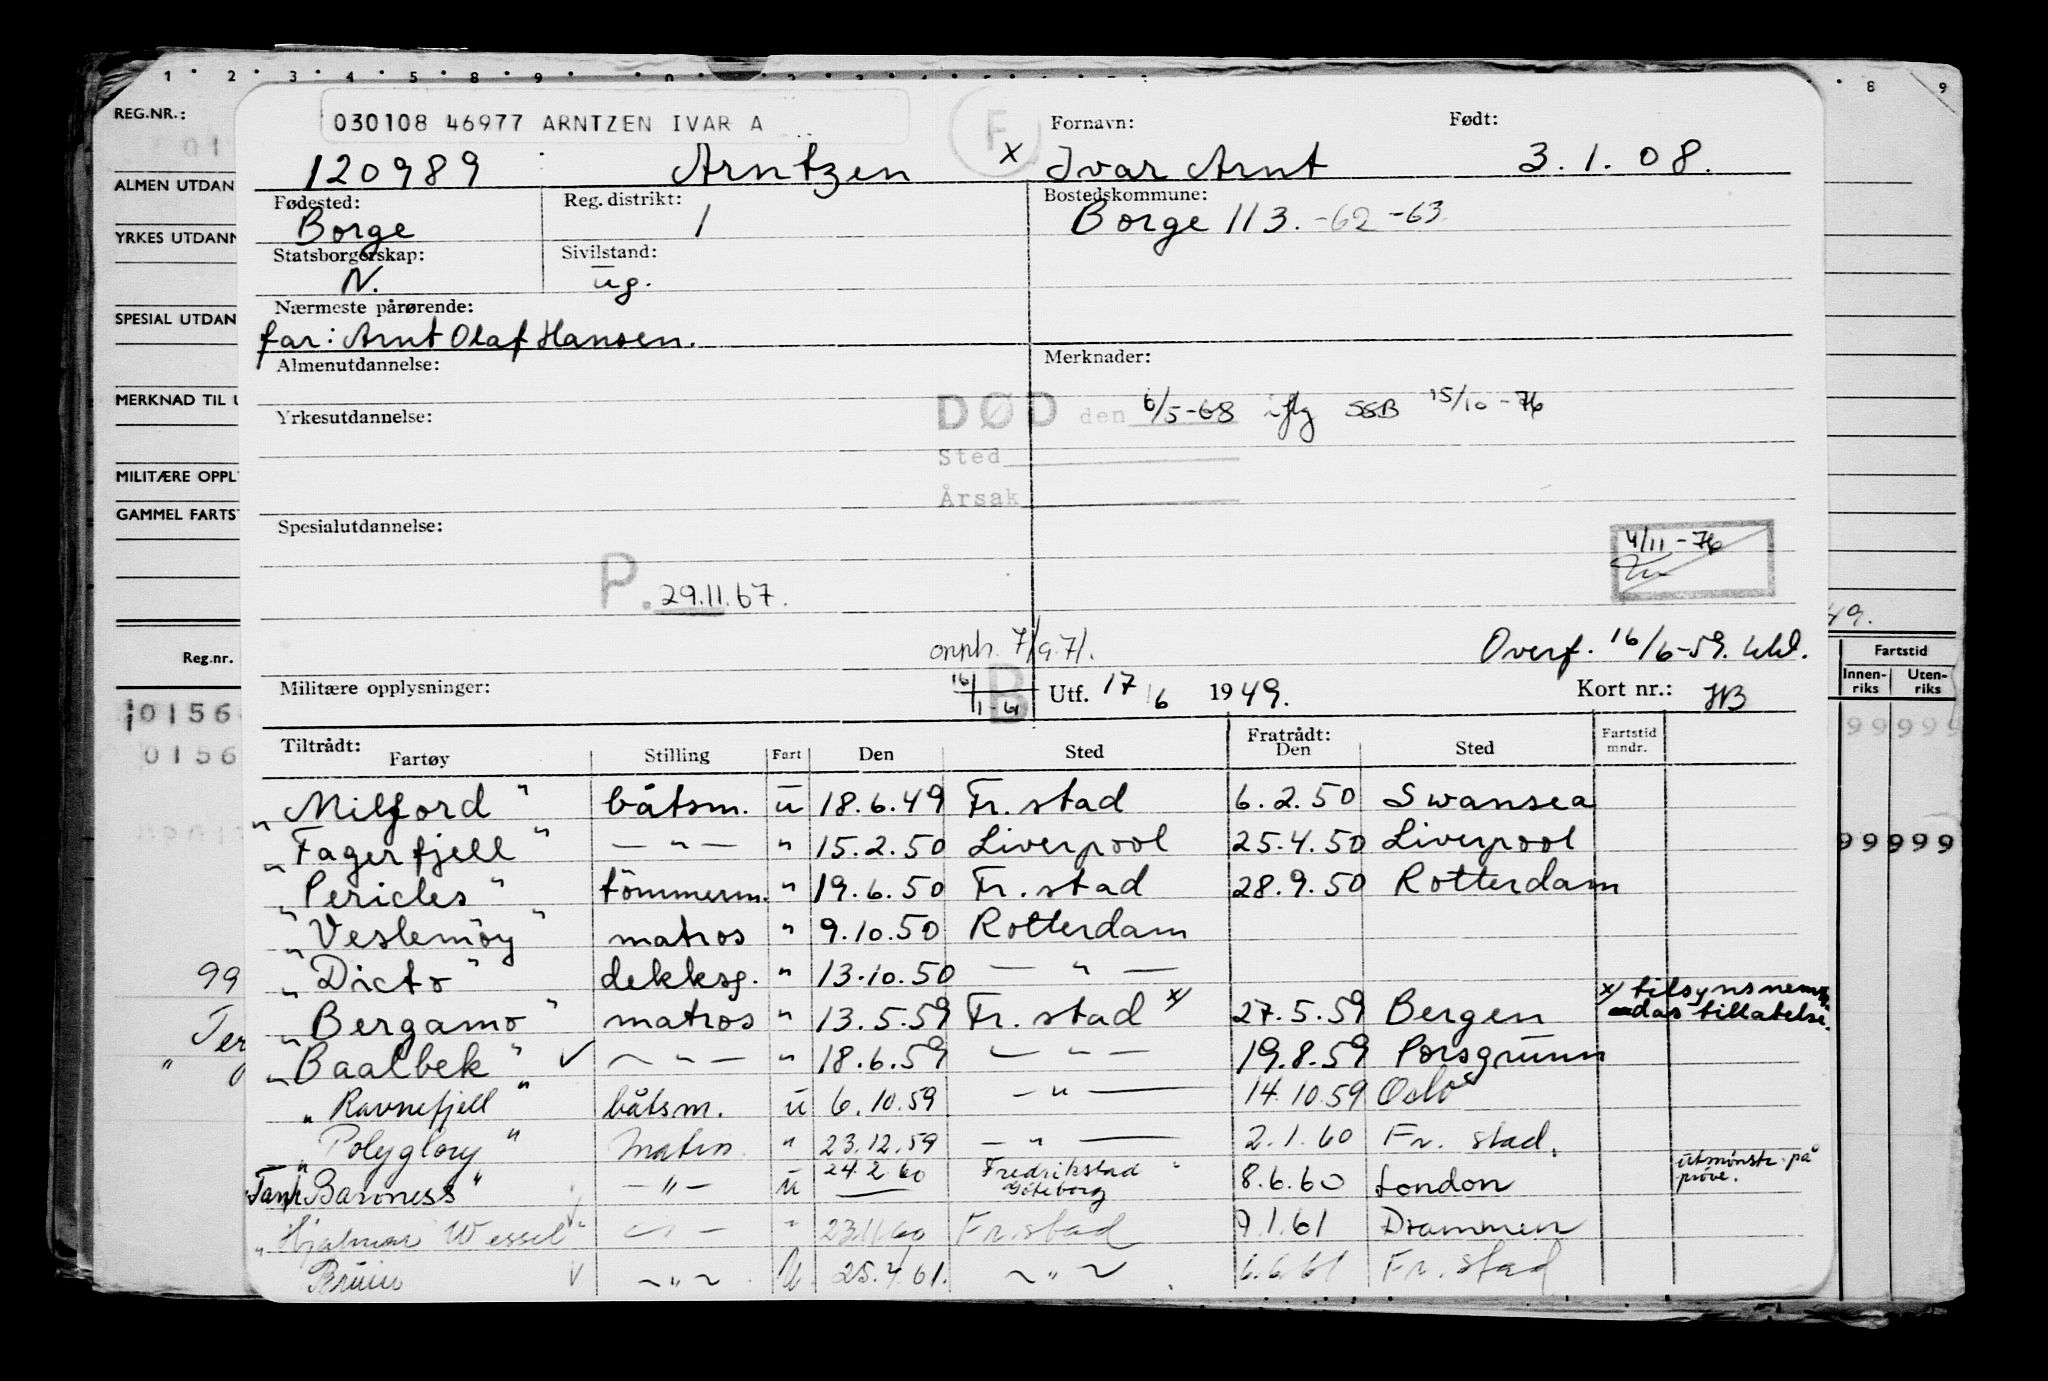 1 2 3 4 5 8 9
8 9
REG.NR.:
ALMEN UTDAN
YRKES UTDANN
SPESIAL UTDAN
MERKNAD TIL U
MILITÆRE OPPL
GAMMEL FARTST
Reg.nr.
0156
0156
99
030108 46977 ARNTZEN IVAR A
F
Fornavn: Født:
120989 Arntzen x Ivar Arnt 3.1.08.
Fødested: Reg. distrikt: Bostedskommune:
Borge 1 Borge 113. -62 -63
Statsborgerskap: Sivilstand:
N. ug.
Nærmeste pårørende:
far: Arnt Olaf Hansen.
Almenutdannelse: Merknader:
DØD den 6/5-68 iflg SSB 15/10-76
Yrkesutdannelse:
Sted
Årsak
Spesialutdannelse:
4/11-76
P. 29.11.67.
opph. 7/9.71. Overf. 16/6-59.
Militære opplysninger: 16/1-61 B Utf. 17/6 1949. Kort nr.: HB
49.
Fartstid
Innen-riks Uten-riks
99999
99999
Tiltrådt: Fratrådt: Fartstid mndr.
Fartøy Stilling Fart Den Sted Den Sted
"Milford" båtsm. u 18.6.49 Fr.stad 6.2.50 Swansea
"Fagerfjell" — " — " 15.2.50 Liverpool 25.4.50 Liverpool
"Pericles" tömmerm. " 19.6.50 Fr.stad 28.9.50 Rotterdam
"Veslemöy" matros " 9.10.50 Rotterdam
"Dicto" dekksg. " 13.10.50 — " —
"Bergamo" matros " 13.5.59 Fr.stad x/ 27.5.59 Bergen x/ tilsynsnemn-das tillatelse.
"Baalbek" ✓ — " — " 18.6.59 — " — 19.8.59 Porsgrunn
"Ravnefjell" båtsm. u 6.10.59 — " — 14.10.59 Oslo
"Polyglory" Matros " 23.12.59 — " — 2.1.60 Fr.stad.
Tank "Baroness" — " — u 24.2.60 Fredrikstad Göteborg 8.6.60 London utmönstr. på pröve.
"Hjalmar Wessel" — " — " 23.11.60 Fr.stad 9.1.61 Drammen
Bruin ✓ — " — U. 25.4.61. — " — 6.6.61 Fr.stad